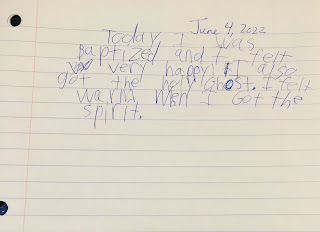 June 4, 2022
Today I was
Baptized and I felt
very happy! I also
got the holy Ghost. I felt
warm when I Got the
spirit.